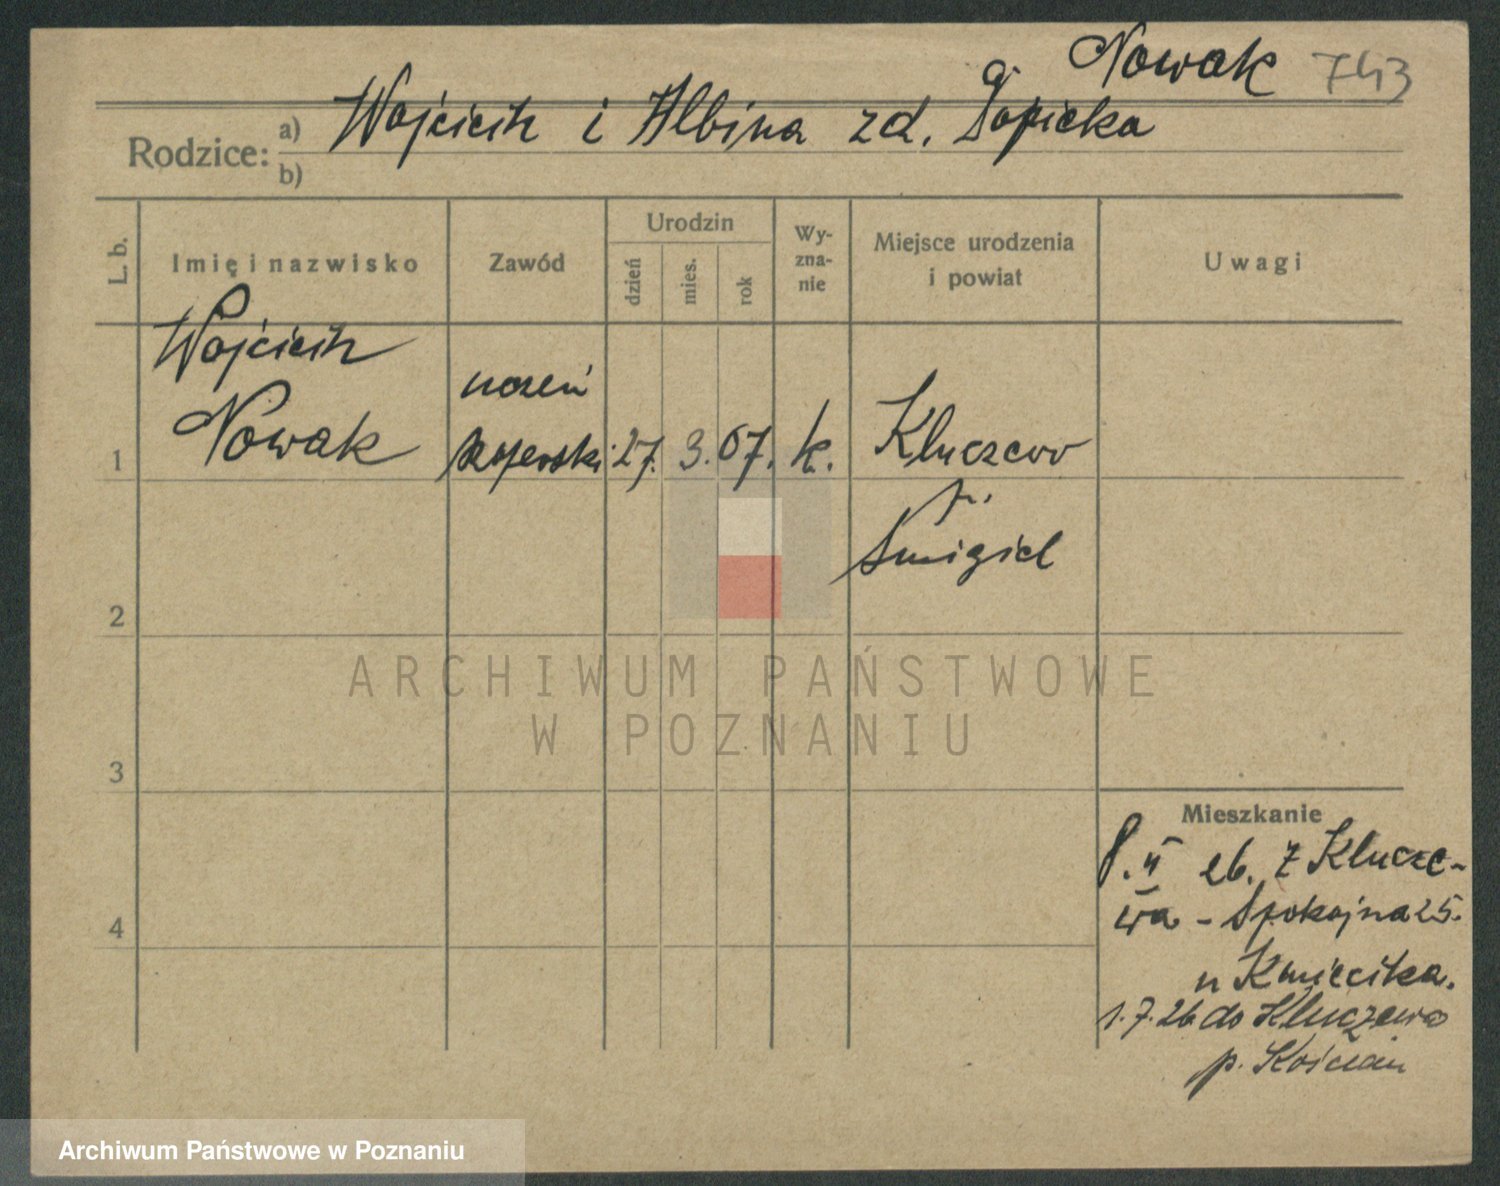 Nowak 743
Wojciech i Albina zd.
Rodzice: a)
b)
L. b.
Imię i nazwisko
Zawód
Urodzin
dzień
mies.
rok
Wy-
zna-
nie
Miejsce urodzenia
i powiat
Uwagi
Wojciech
uczeń
1 Nowak 27. 3. 07. k. Kluczewo
p.
Śmigiel
2
ARCHIWUM PAŃSTWOWE
W POZNANIU
3
Mieszkanie
8. II 26. z Klucze-
wa - Spokojna 25.
u Kmiecika.
4
1.7.26 do Kluczewa
p. Kościan
Archiwum Państwowe w Poznaniu